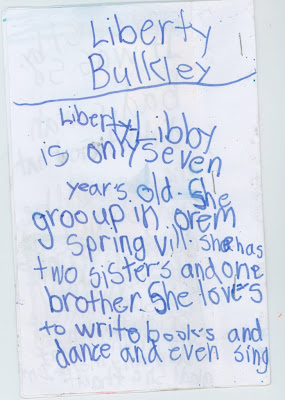 Liberty
Bulkley
Liberty Libby
is only seven
years. old. She
groo up in orem
spring vill. she has
two sisters and one
brother. She loves
to write books and
dance and even sing